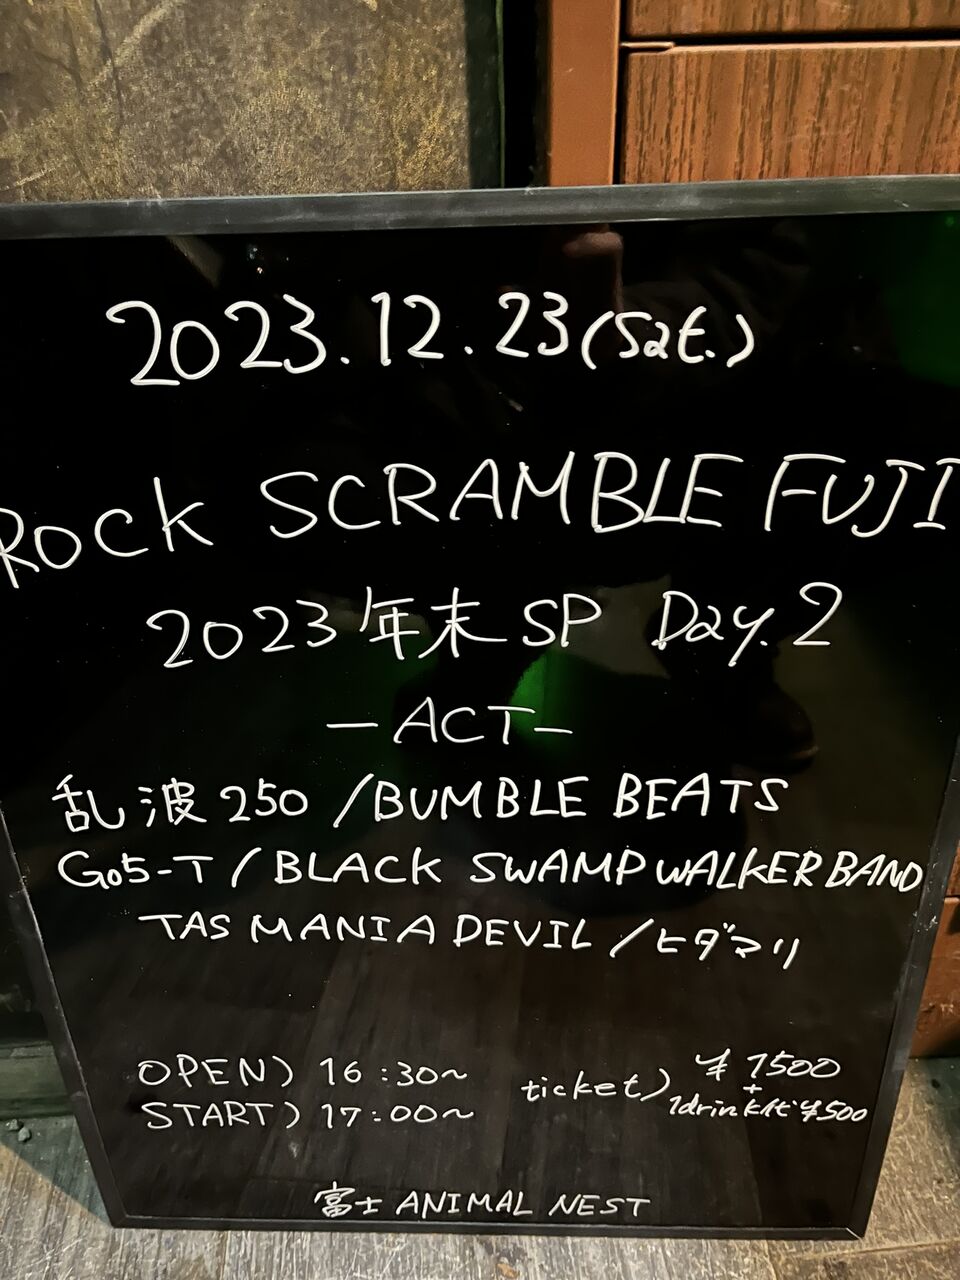 2023.12.23(Sat.)
ROCK SCRAMBLE FUJI
2023年末 SP Day.2
-ACT-
乱波250 /BUMBLE BEATS
Go5-T / BLACK SWAMP WALKER BAND
TAS MANIA DEVIL / ヒダマリ
OPEN) 16:30~
START) 17:00~
ticket) ¥1500
+
1drink代¥500
富士 ANIMAL NEST